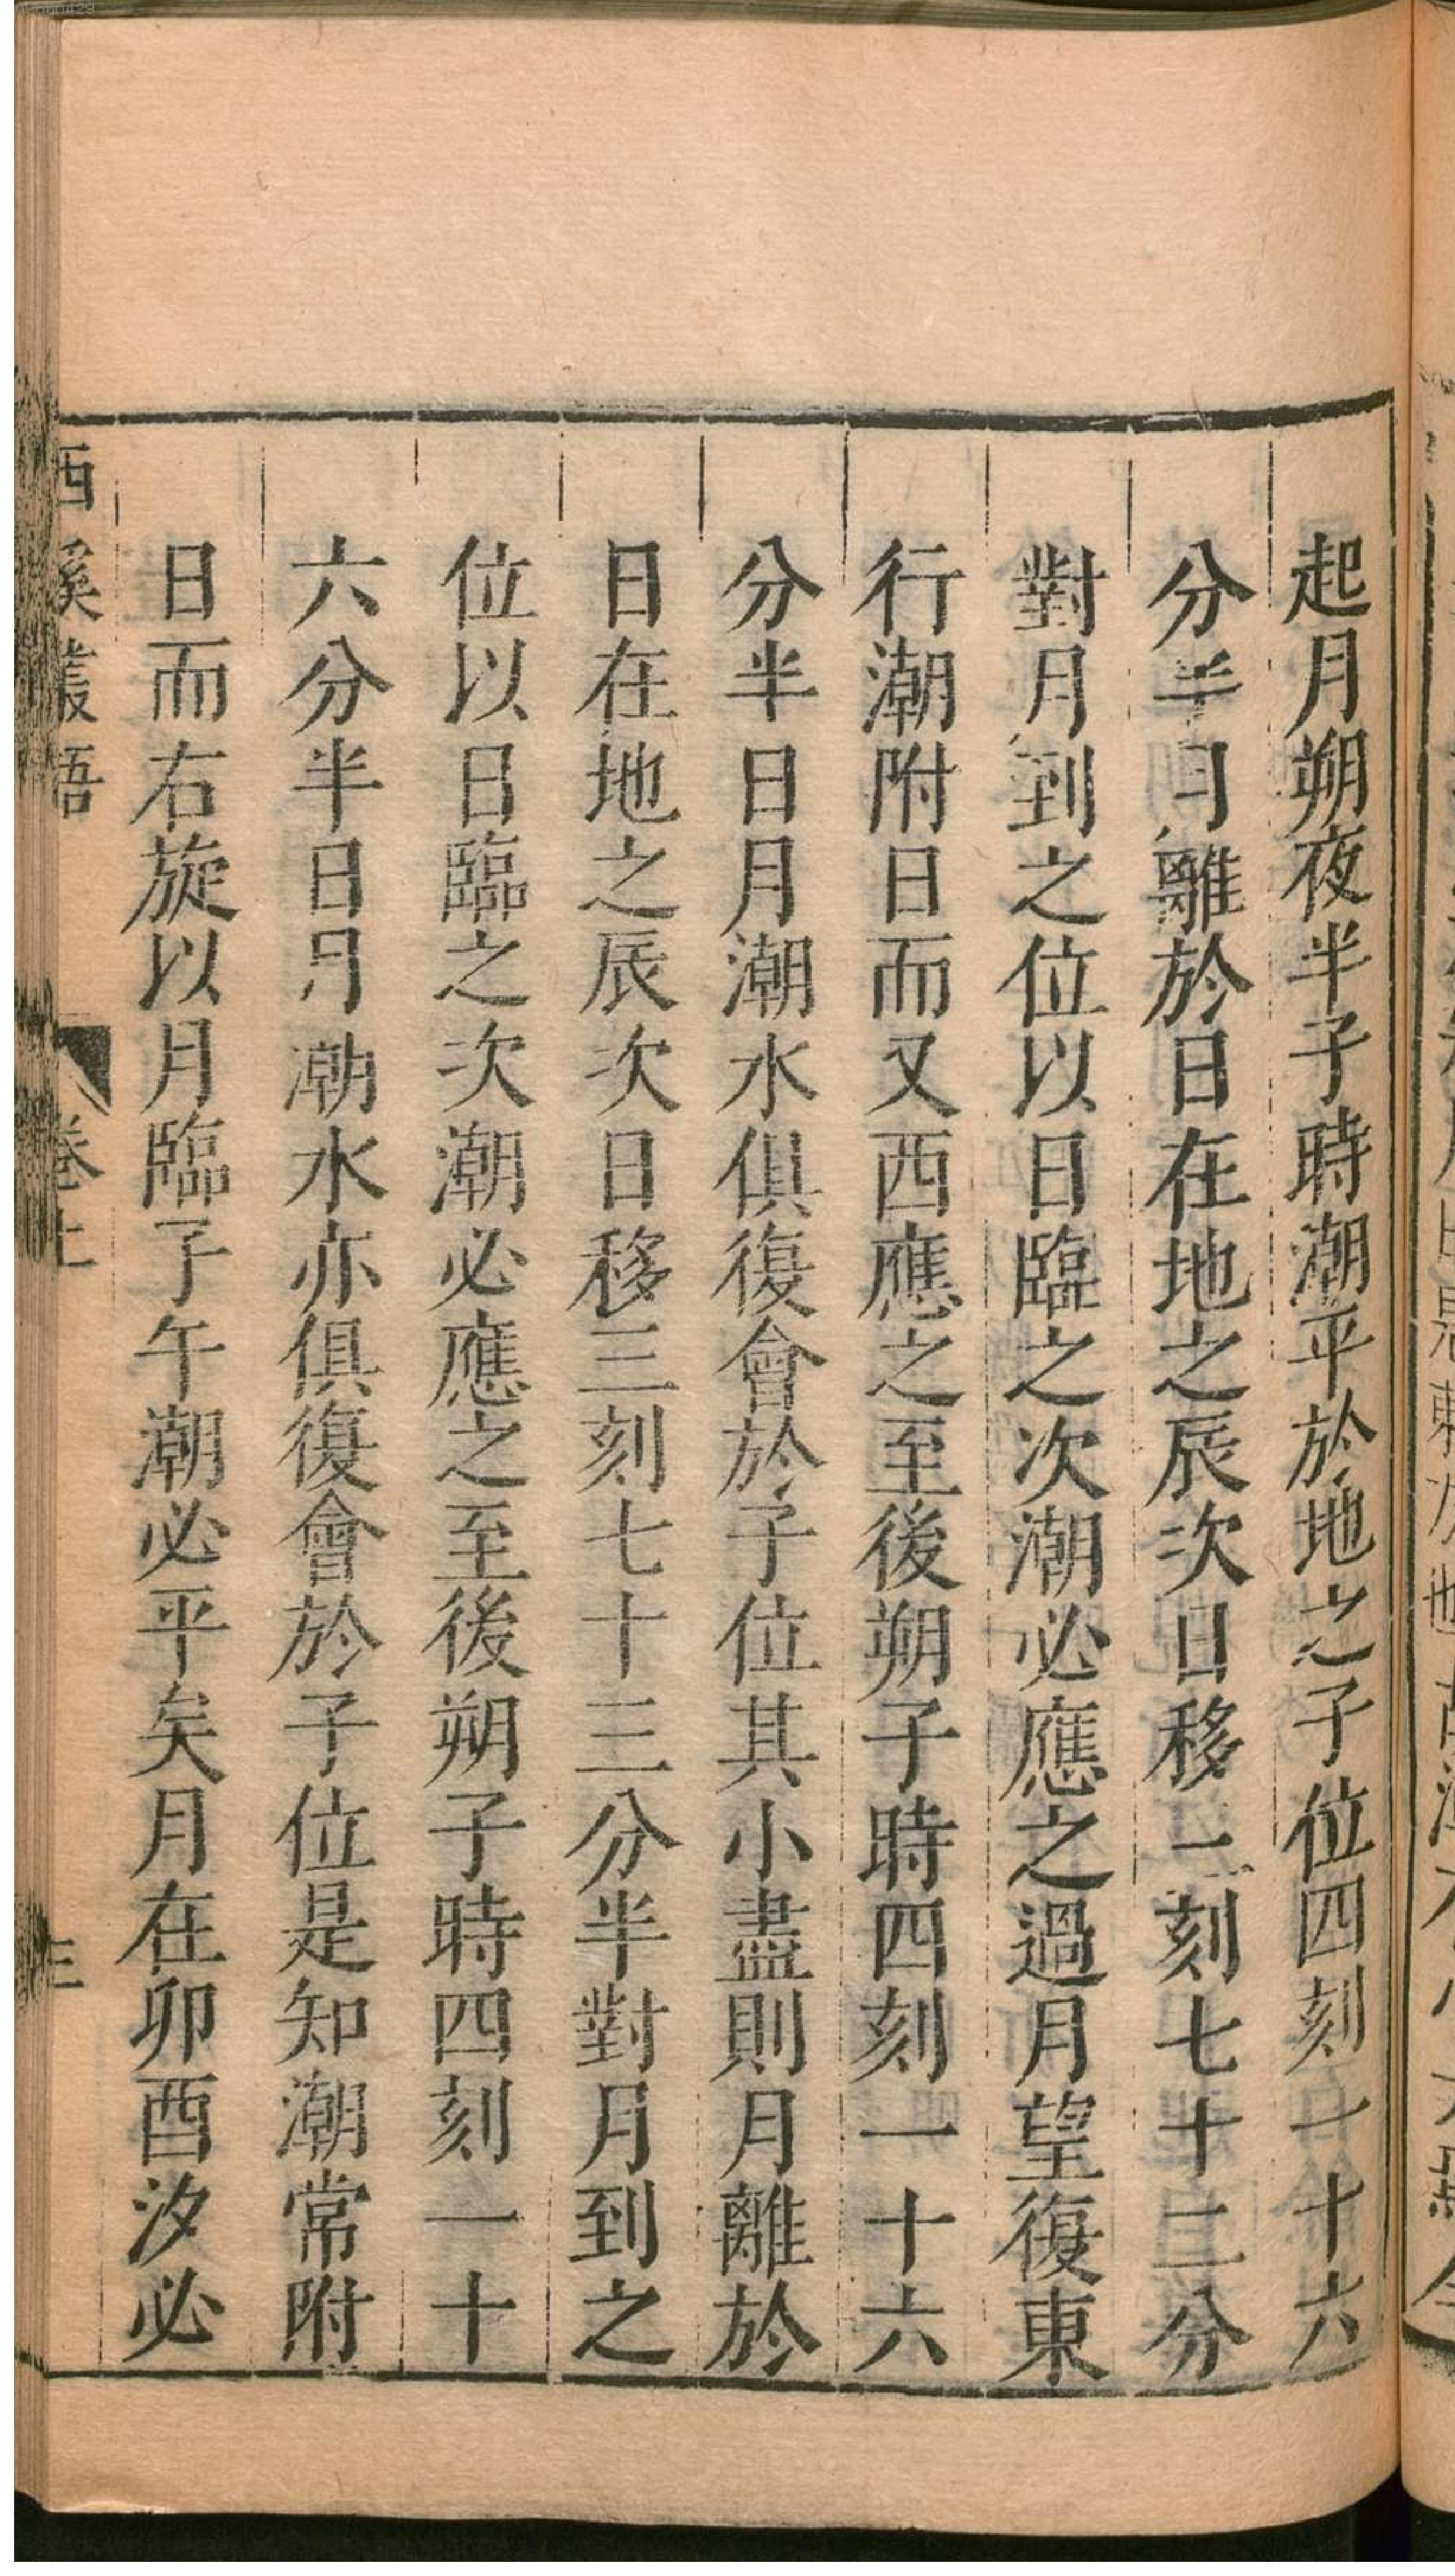 起月朔夜半子時潮平於地之子位四刻一十六
分半月離於日在地之辰次日移三刻七十二分
對月到之位以日臨之次潮必應之過月望復東
行潮附日而又西應之至後朔子時四刻一十六
分半日月潮水俱復會於子位其小盡則月離於
日在地之辰次日移三刻七十三分半對月到之
位以日臨之次潮必應之至後朔子時四刻一十
六分半日月潮水亦俱復會於子位是知潮常附
日而右旋以月臨子午潮必平矣月在卯酉汐必
西溪叢語 卷上 三